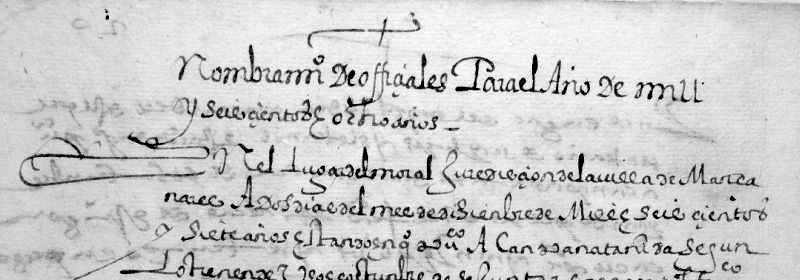 Nombramio de offiçiales Para el Año de mill
y seisçientos y ocho años
En el lugar del moral Juridiçion de la villa de Mança
nares A dos dias del mes de diçienbre de Mill y seis çientos
y siete años estando en A Canpana tanida segun
lo tienen de costunbre de se Juntar